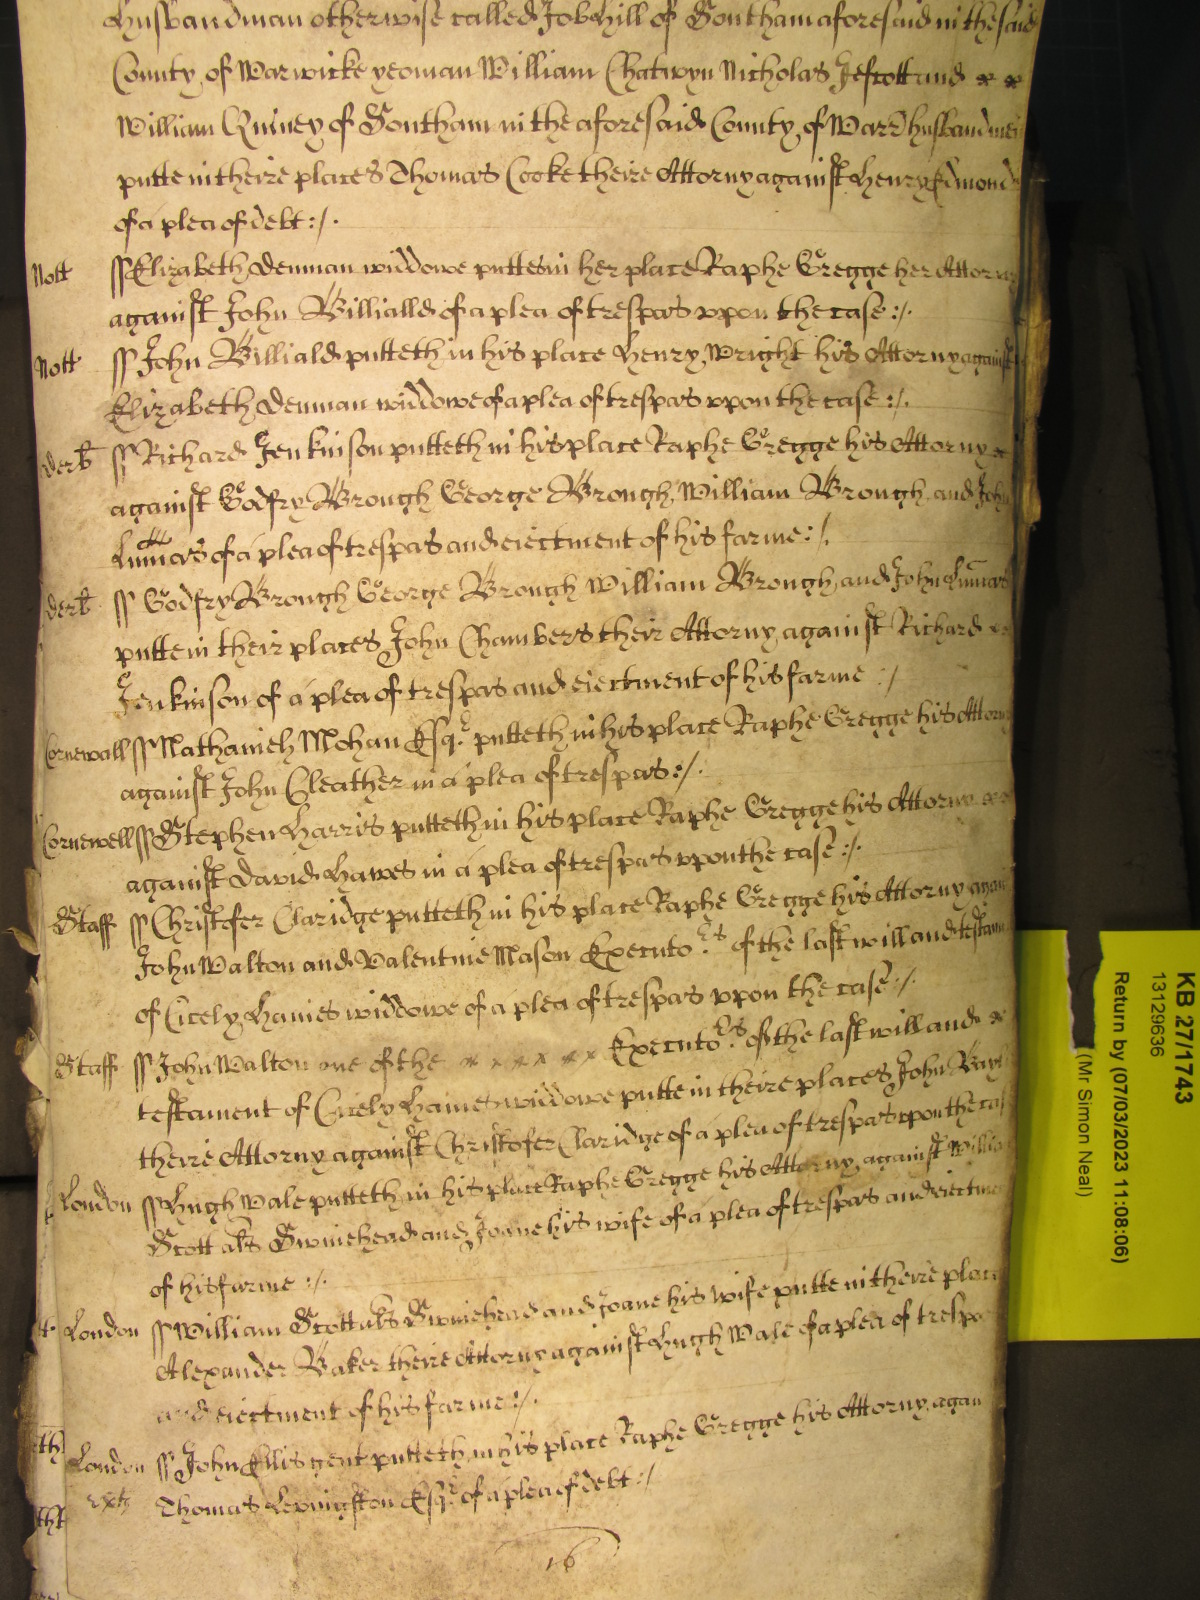 Husbandman otherwise called Job Hill of Southam aforesaid in the said
County of Warwicke yeoman William Chatwyn Nicholas Jescott and
William Quiney of Southam in the aforesaid County of Warr husbandmen
putte in theire places Thomas Cooke theire Attorny against Henry Edmond
of a plea of debt :/.
Nott ss Elizabeth Denman widdowe puttes in her place Raphe Gregge her Attorny
against John Billialld of a plea of trespas vpon the case :/.
Nott ss John Billiald putteth in his place Henry Wright his Attorny against
Elizabeth Denman widdowe of a plea of trespas vpon the case :/.
derb ss Richard Jenkinson putteth in his place Raphe Gregge his Attorny
against Godfry Brough George Brough William Brough and John
Lumas of a plea of trespas and eiectment of his farme :/.
derb ss Godfry Brough George Brough William Brough and John Lumas
putte in their places John Chambers their Attorny against Richard
Jenkinson of a plea of trespas and eiectment of his farme :/
Cornewall ss Nathanieh Mohan Esqr putteth in his place Raphe Gregge his Attorn
against John Cleather in a plea of trespas :/.
Cornewell ss Stephen Harris putteth in his place Raphe Gregge his Attorny
against David Hawes in a plea of trespas vpon the case :/.
Staff ss Christofer Claridge putteth in his place Raphe Gregge his Attorny again
John Walton and Valentine Mason Executors of the last will and testam
of Cicely Haines widdowe of a plea of trespas vpon the case :/.
Staff ss John Walton one of the x x x x x x Executors of the last will and
testament of Cicely Haines widdowe putte in theire places John Bayl
theire Attorny against Christofer Claridge of a plea of trespas vpon the cas
London ss Hugh Wale putteth in his place Raphe Gregge his Attorny against Willia
Scott als Swinehead and Joane his wife of a plea of trespas and eiectme
of his farme :/.
London ss William Scott als Swinehead and Joane his wife putte in theire place
Alexander Baker theire Attorny against Hugh Wale of a plea of trespa
and eiectment of his farme :/.
London ss John Ellis gent putteth in his place Raphe Gregge his Attorny again
Thomas Levingston Esqr of a plea of debt :/
16
KB 27/1743
13129636
Return by (07/03/2023 11:08:06)
(Mr Simon Neal)